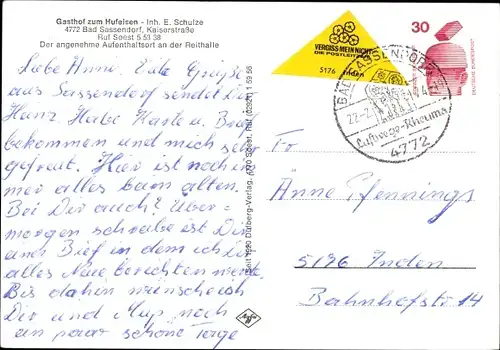 Gasthof zum Hufeisen - Inh. E. Schulze
4772 Bad Sassendorf, Kaiserstraße
Ruf Soest 5 53 38
Der angenehme Aufenthaltsort an der Reithalle
Liebe Änni. Viele Grüße
aus Sassendorf sendet Dir
Hanz. Habe Karte u. Brief
bekommen und mich sehr
gefreut. Hier ist noch im
mer alles beim alten.
Bei Dir auch? Über=
morgen schreibe ist Dir
einen Brief in dem ich Dir
alles Neue berichten werde.
Bis dahin wünsche ich
Dir und noch
ein paar schöne Tage
Cekade
VERGISSMEINNICHT
DIE POSTLEITZAHL
5176 Inden
30
DEUTSCHE BUNDESPOST
BAD SASSENDORF
Luftwege-Rheuma
4772
To
Änne Pfennings
5176 Inden
Bahnhofstr. 14
Agfa